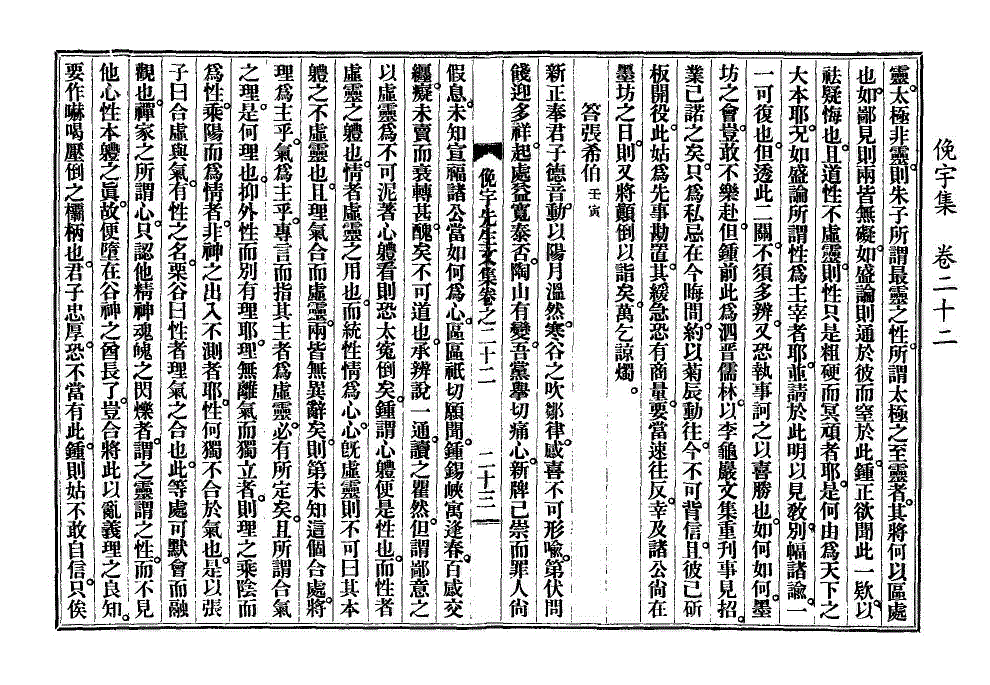 俛宇集 卷二十二
靈。太極非靈。則朱子所謂最靈之性。所謂太極之至靈者。其將何以區處
也。如鄙見則兩皆無礙。如盛論則通於彼而窒於此。鍾正欲聞此一欵。以
祛疑悔也。且道性不虛靈。則性只是粗硬而冥頑者耶。是何由爲天下之
大本耶。况如盛論所謂性爲主宰者耶。並請於此明以見敎。別幅諸諭。一
一可復也。但透此二關。不須多辨。又恐執事訶之以喜勝也。如何如何。墨
坊之會。豈敢不樂赴。但鍾前此爲泗晋儒林。以李龜巖文集重刊事見招。
業已諾之矣。只爲私忌在今晦間。約以菊辰動往。今不可背信。且彼已斫
板開役。此姑爲先事勘置。其緩急恐有商量。要當速往反。幸及諸公尙在
墨坊之日。則又將顚倒以詣矣。萬乞諒燭。
答張希伯 壬寅
新正奉君子德音。動以陽月溫然。寒谷之吹鄒律。感喜不可形喩。第伏問
餞迎多祥。起處益寬泰否。陶山有變。吾黨擧切痛心。新牌已崇而罪人尙
俛宇先生文集卷之二十二 二十三
假息。未知宣福諸公當如何爲心。區區祇切願聞。鍾錫峽寓逢春。百感交
纏。癡未賣而衰轉甚。醜矣不可道也。承辨說一通。讀之瞿然。但謂鄙意之
以虛靈爲不可泥著心軆看則恐太寃倒矣。鍾謂心軆便是性也。而性者
虛靈之軆也。情者虛靈之用也。而統性情爲心。心旣虛靈則不可曰其本
軆之不虛靈也。且理氣合而虛靈。兩皆無異辭矣。則第未知這個合處。將
理爲主乎。氣爲主乎。專言而指其主者爲虛靈。必有所定矣。且所謂合氣
之理。是何理也。抑外性而別有理耶。理無離氣而獨立者。則理之乘陰而
爲性。乘陽而爲情者。非神之出入不測者耶。性何獨不合於氣也。是以張
子曰合虛與氣。有性之名。栗谷曰性者理氣之合也。此等處可默會而融
觀也。禪家之所謂心。只認他精神魂魄之閃爍者。謂之靈謂之性。而不見
他心性本軆之眞。故便墮在谷神之酋長了。豈合將此以亂義理之良知。
要作嚇喝壓倒之欛柄也。君子忠厚。恐不當有此。鍾則姑不敢自信。只俟